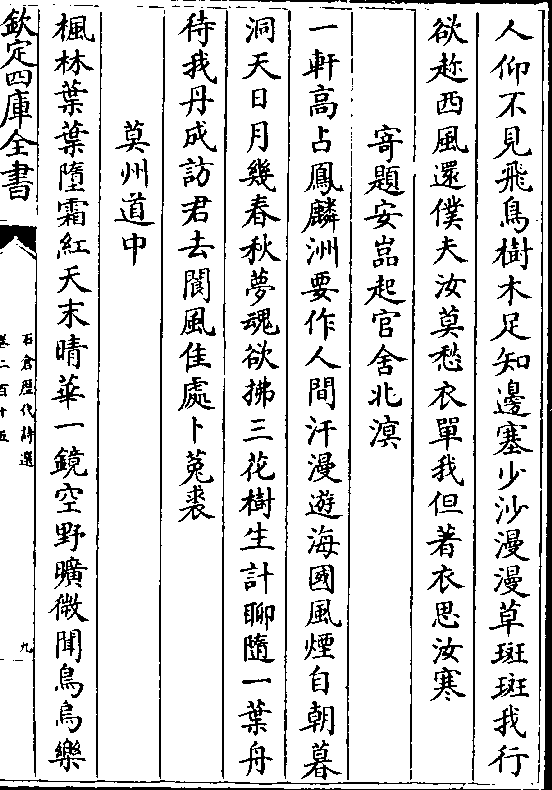 人仰不見飛鳥樹木足知邊塞少沙漫漫草斑斑我行
欲趂西風還僕夫汝莫愁衣單我但著衣思汝寒
寄題安嵓起官舍北溟
一軒高占鳳麟洲要作人間汗漫遊海國風煙自朝暮
洞天日月幾春秋夢魂欲拂三花樹生計聊隨一葉舟
待我丹成訪君去閬風佳處卜菟裘
莫州道中
楓林葉葉墮霜紅天末晴華一鏡空野曠微聞鳥烏樂
欽定四庫全書
石倉歴代詩選
卷二百十五
九